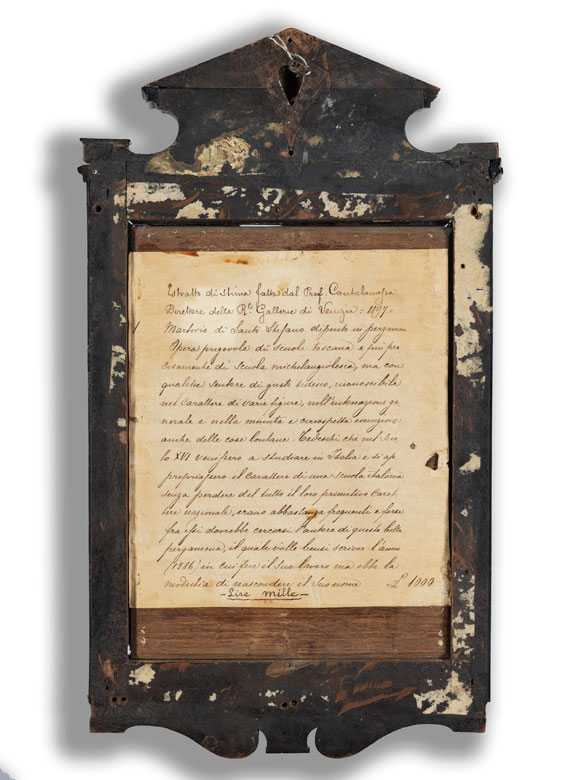 Estratto di stima fatta dal Prof. Cantalamessa
Direttore delle Rle Gallerie di Venezia = 1897 =
Martirio di Santo Stefano dipinto in pergamena
Opera pregevole di scuola toscana e più pre
cisamente di scuola michelangiolesca, ma con
qualche sentore di gusto tedesco, riconoscibile
nel carattere di varie figure, nell'intonazione ge
nerale e nella minuta e circospetta esecuzione
anche delle cose lontane. Tedeschi che nel seco
lo XVI vennero a studiare in Italia e si ap
propriassero il carattere di una scuola italiana
senza perdere del tutto il loro primitivo carat
tere nazionale, erano abbastanza frequenti e forse
fra essi dovrebbe cercarsi l'autore di questa bella
pergamena, il quale volle bensì scriver l'anno
(1586) in cui fece il suo lavoro ma ebbe la
modestia di nascondere il suo nome L 1000
- Lire mille -